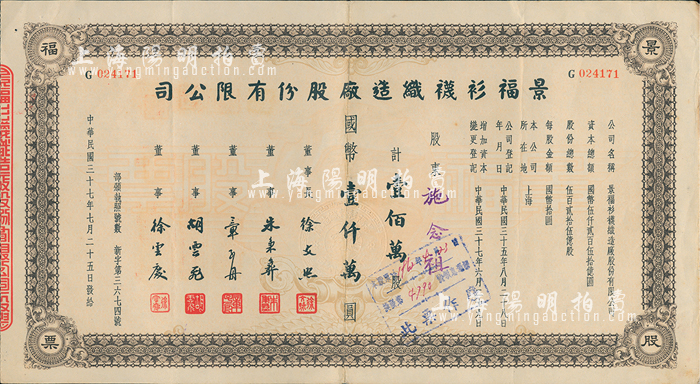 景
福
股
票
G 024171
G 024171
景福衫襪織造廠股份有限公司
公司名稱 景福衫襪織造廠股份有限公司
資本總額 國幣伍仟貳百伍拾億圓
股份總數 伍百貳拾伍億股
每股金額 國幣拾圓
本公司所在地 上海
公司登記年月日 中華民國三十五年八月二十八日
增加資本變更登記 中華民國三十七年六月
股東 施念
計壹佰萬股
國幣壹仟萬圓
董事長 徐文照
董事 朱
董事 章
董事 胡雲
董事 徐雲慶
部頒執照號數 新字第三六七四號
中華民國三十七年七月二十五日發給
上海陽明拍賣
www.yangmingauction.com
上海陽明拍賣
www.yangmingauction.com